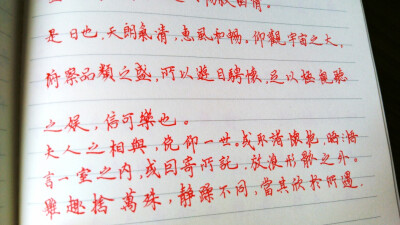 情。
是日也,天朗氣清,惠風和暢。仰觀宇宙之大,
俯察品類之盛,所以遊目騁懷,足以極視聽
之娛,信可樂也。
夫人之相與,俛仰一世。或取諸懷抱,
言一室之内,或因寄所託,放浪形骸之外。
雖趣捨萬殊,静躁不同,當其欣於所遇,